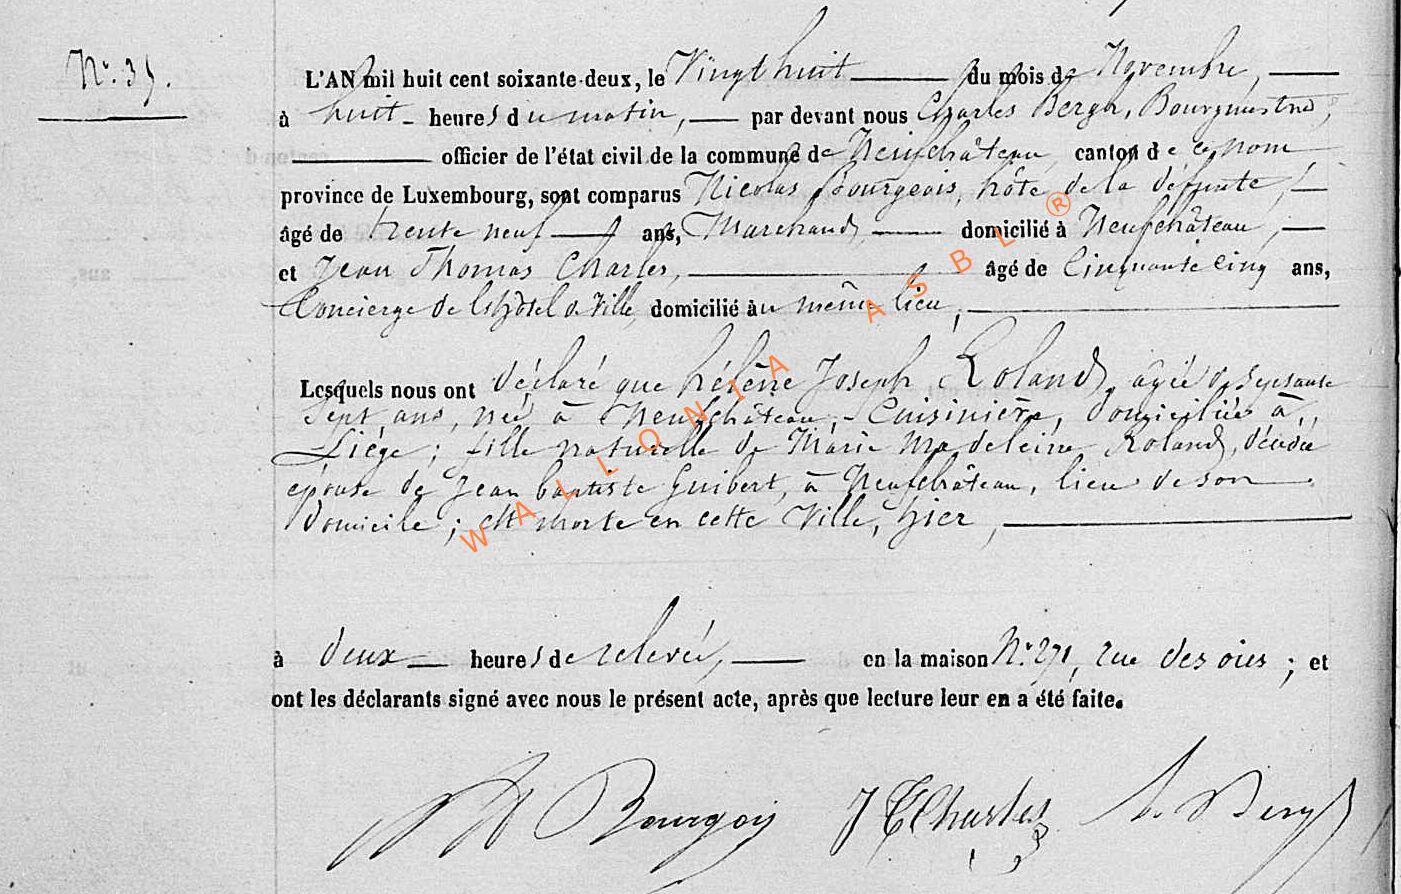 N° 35.
L'AN mil huit cent soixante-deux, le Vingt huit du mois de Novembre,
à huit heures du matin, par devant nous Charles Bergh, Bourgmestre,
officier de l'état civil de la commune de Neufchâteau, canton de ce nom,
province de Luxembourg, sont comparus Nicolas Bourgeois, hôte de la défunte,
âgé de trente neuf ans, Marchand, domicilié à Neufchâteau,
et Jean Thomas Charles, âgé de Cinquante cinq ans,
Concierge de l'hôtel de Ville, domicilié au même lieu,
Lesquels nous ont déclaré que hélène Joseph Roland, âgée de Sepsante
Sept ans, née à Neufchâteau, Cuisinière, domiciliée à
Liége; fille naturelle de Marie Madeleine Roland, décédée
épouse de Jean baptiste Guibert, à Neufchâteau, lieu de son
domicile; est morte en cette Ville, hier,
à deux heures de relevée, en la maison N° 271, rue des oies; et
ont les déclarants signé avec nous le présent acte, après que lecture leur en a été faite.
Bourgois J T Charles
WALLONIA ASBL ®